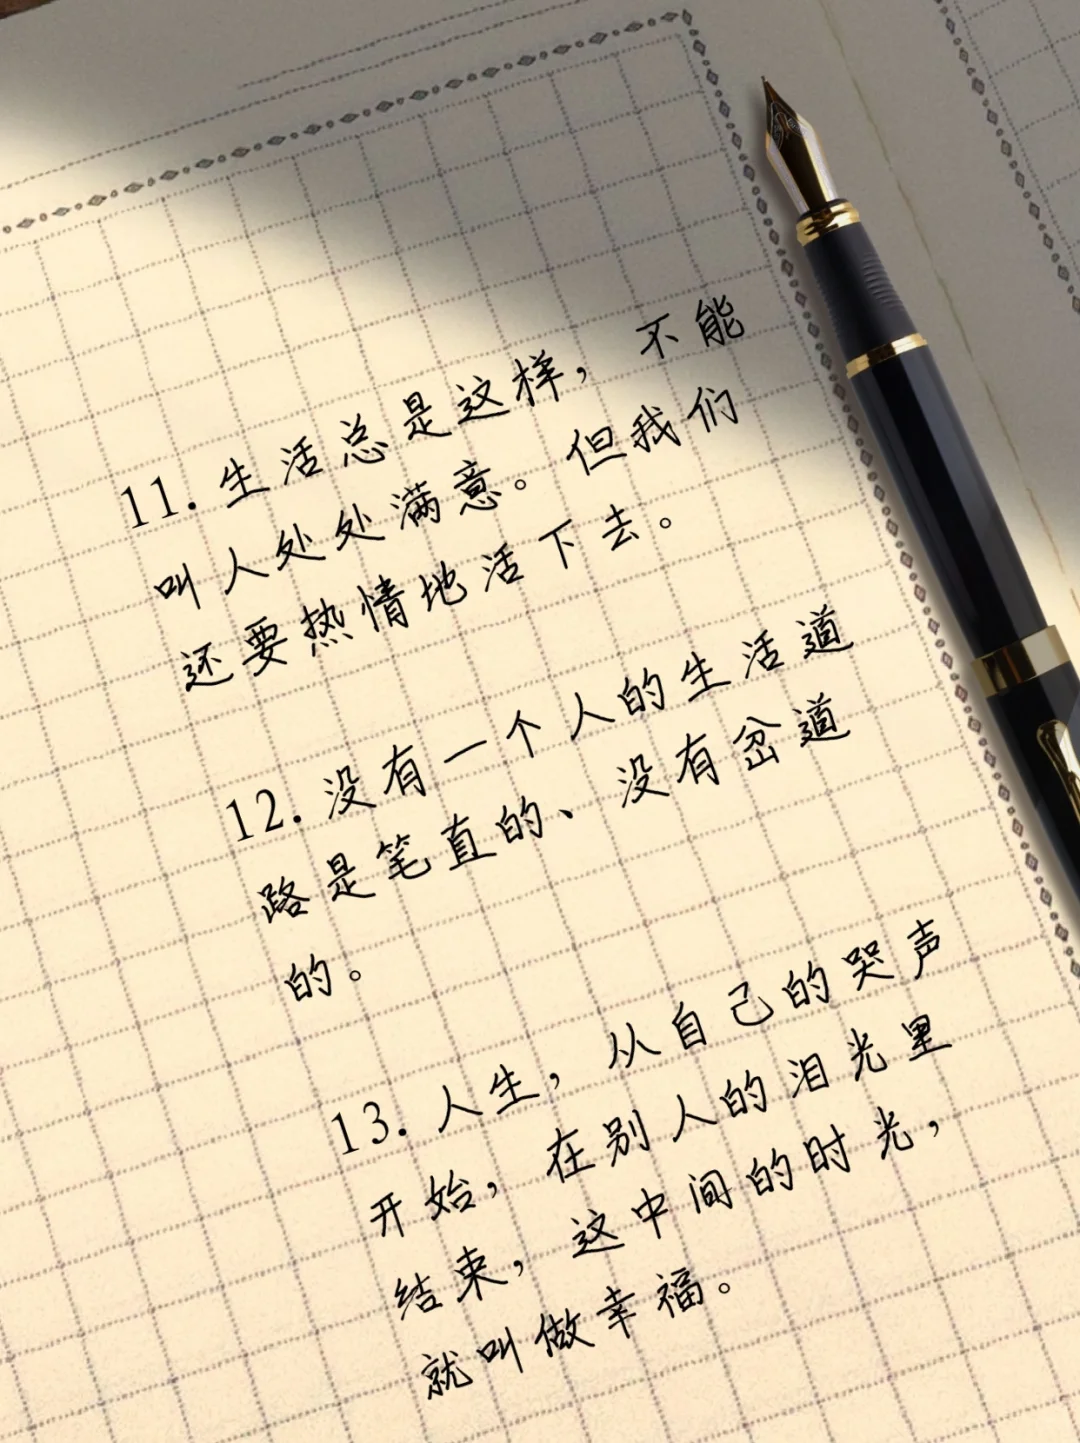 11. 生活总是这样，不能
叫人处处满意。但我们
还要热情地活下去。
12. 没有一个人的生活道
路是笔直的、没有岔道
的。
13. 人生，从自己的哭声
开始，在别人的泪光里
结束，这中间的时光，
就叫做幸福。